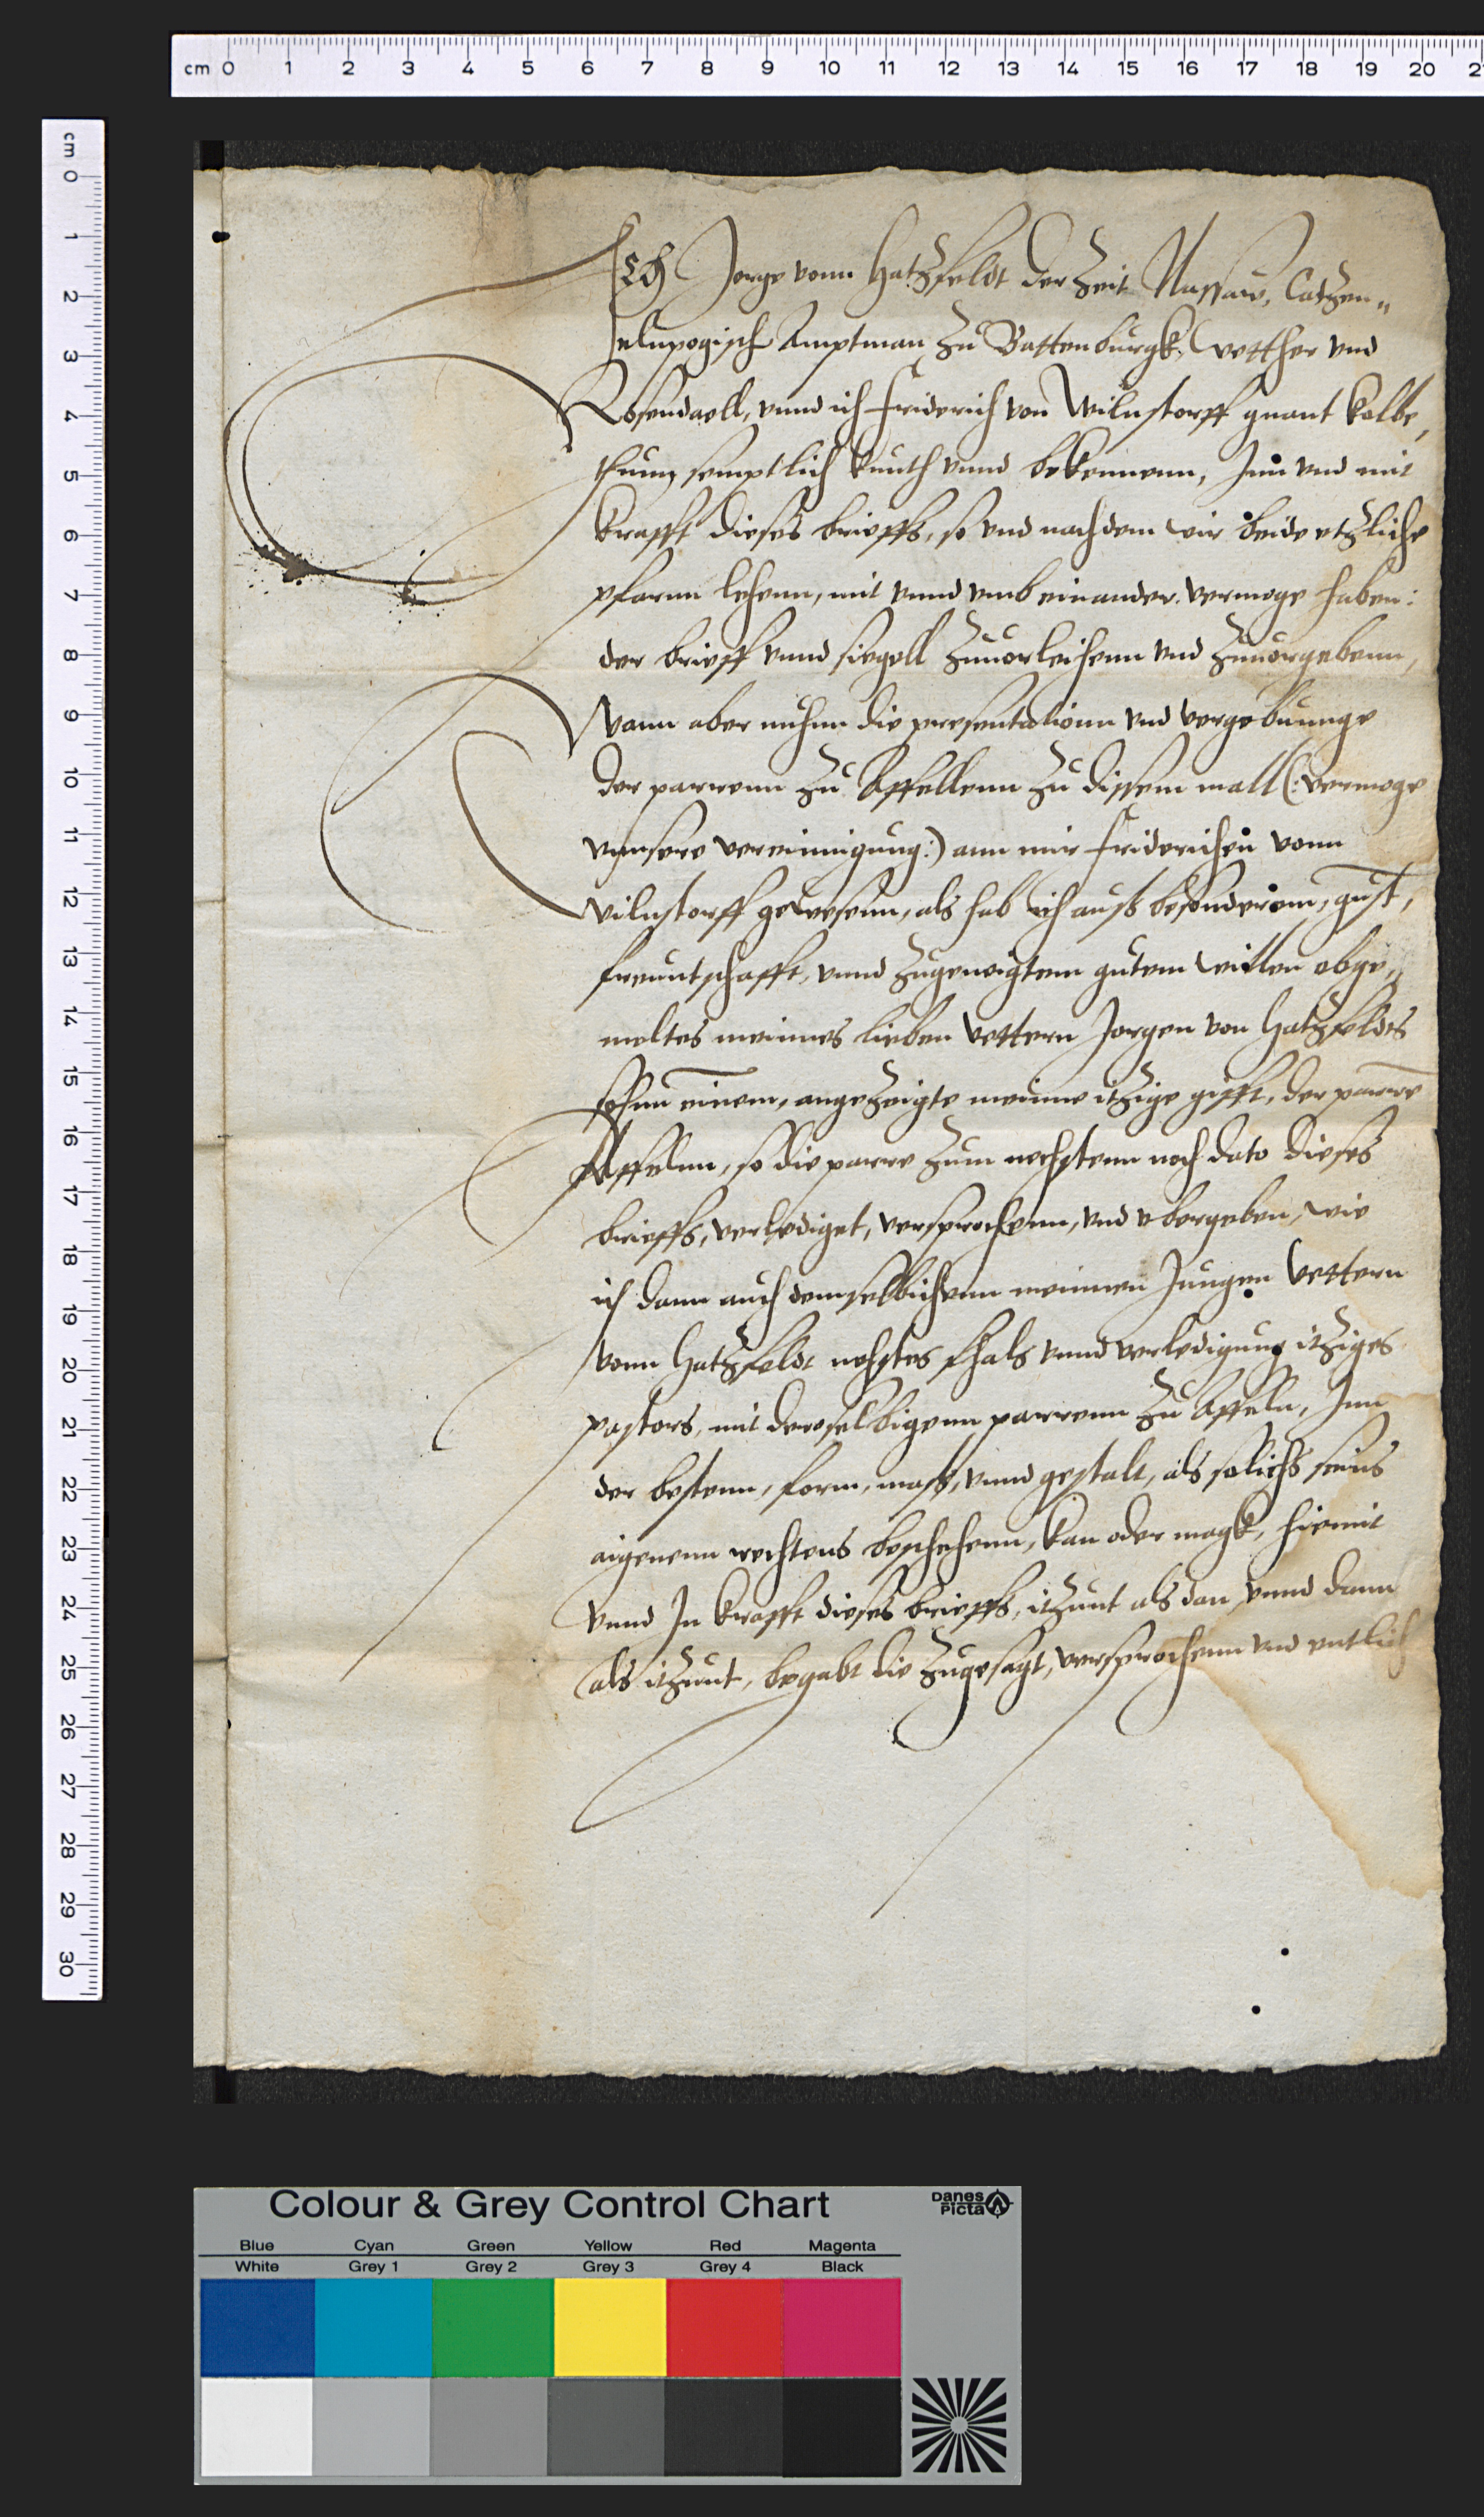 cm 0 1 2 3 4 5 6 7 8 9 10 11 12 13 14 15 16 17 18 19 20 2
cm 0 1 2 3 4 5 6 7 8 9 10 11 12 13 14 15 16 17 18 19 20 21 22 23 24 25 26 27 28 29 30
Ich Jorge vonn Hatzfeldt der Zeit Nassaw, Catzen„
elnpogisch Amptman zu Battenburgk, Vetther vnd
Rosendaell, vnnd ich Friderich von Wilnstorff gnant Kolbe,
thunn semptlich kunth vnnd bekennenn, Inn vnd mit
krafft dieses brieffs, so vnd nachdem wir beide etzliche
pfarnn lehenn, mit vnnd vmb einander, vermoge haben:
der brieff vnnd siegell zuuorleihenn vnd zuuorgebenn,
Wann aber nuhnn die presentationn vnd vergebunge
der parrenn zu Affellenn zu dissem mall (: vermoge
vnnsere vereinnigung :) ann mir Friderichen vonn
Wilnstorff gewesenn, als hab ich auß besonderem, gust,
freuntschafft, vnnd zugeneigtem gutem willen obge„
meltes meinnes lieben Vettern Jorgen von Hatzfeldts
sohnn einem, angezeigte meinne itzige gifft, der parre
Affelnn, so die parre zum nechstenn noch dato dieses
brieffs, verlediget, versprochenn, vnd vbergeben, wie
ich dann auch demselbichenn meinnen Jungen Vettern
vonn Hatzfeldt nehstes fhals vnnd verledigung itziges
pastors, mit deroselbigenn parrenn zu Affeln, Inn
der bestenn, form, maß, vnnd gestalt, als solichs seins
aigenenn rechtens beschehenn, kan oder magk, hiemit
vnnd In krafft dieses brieffs, itzunt als dan vnnd dann
als itzunt, begabt die zugesagt, versprochenn vnd entlich
Colour & Grey Control Chart
Danes Picta
Blue Cyan Green Yellow Red Magenta
White Grey 1 Grey 2 Grey 3 Grey 4 Black